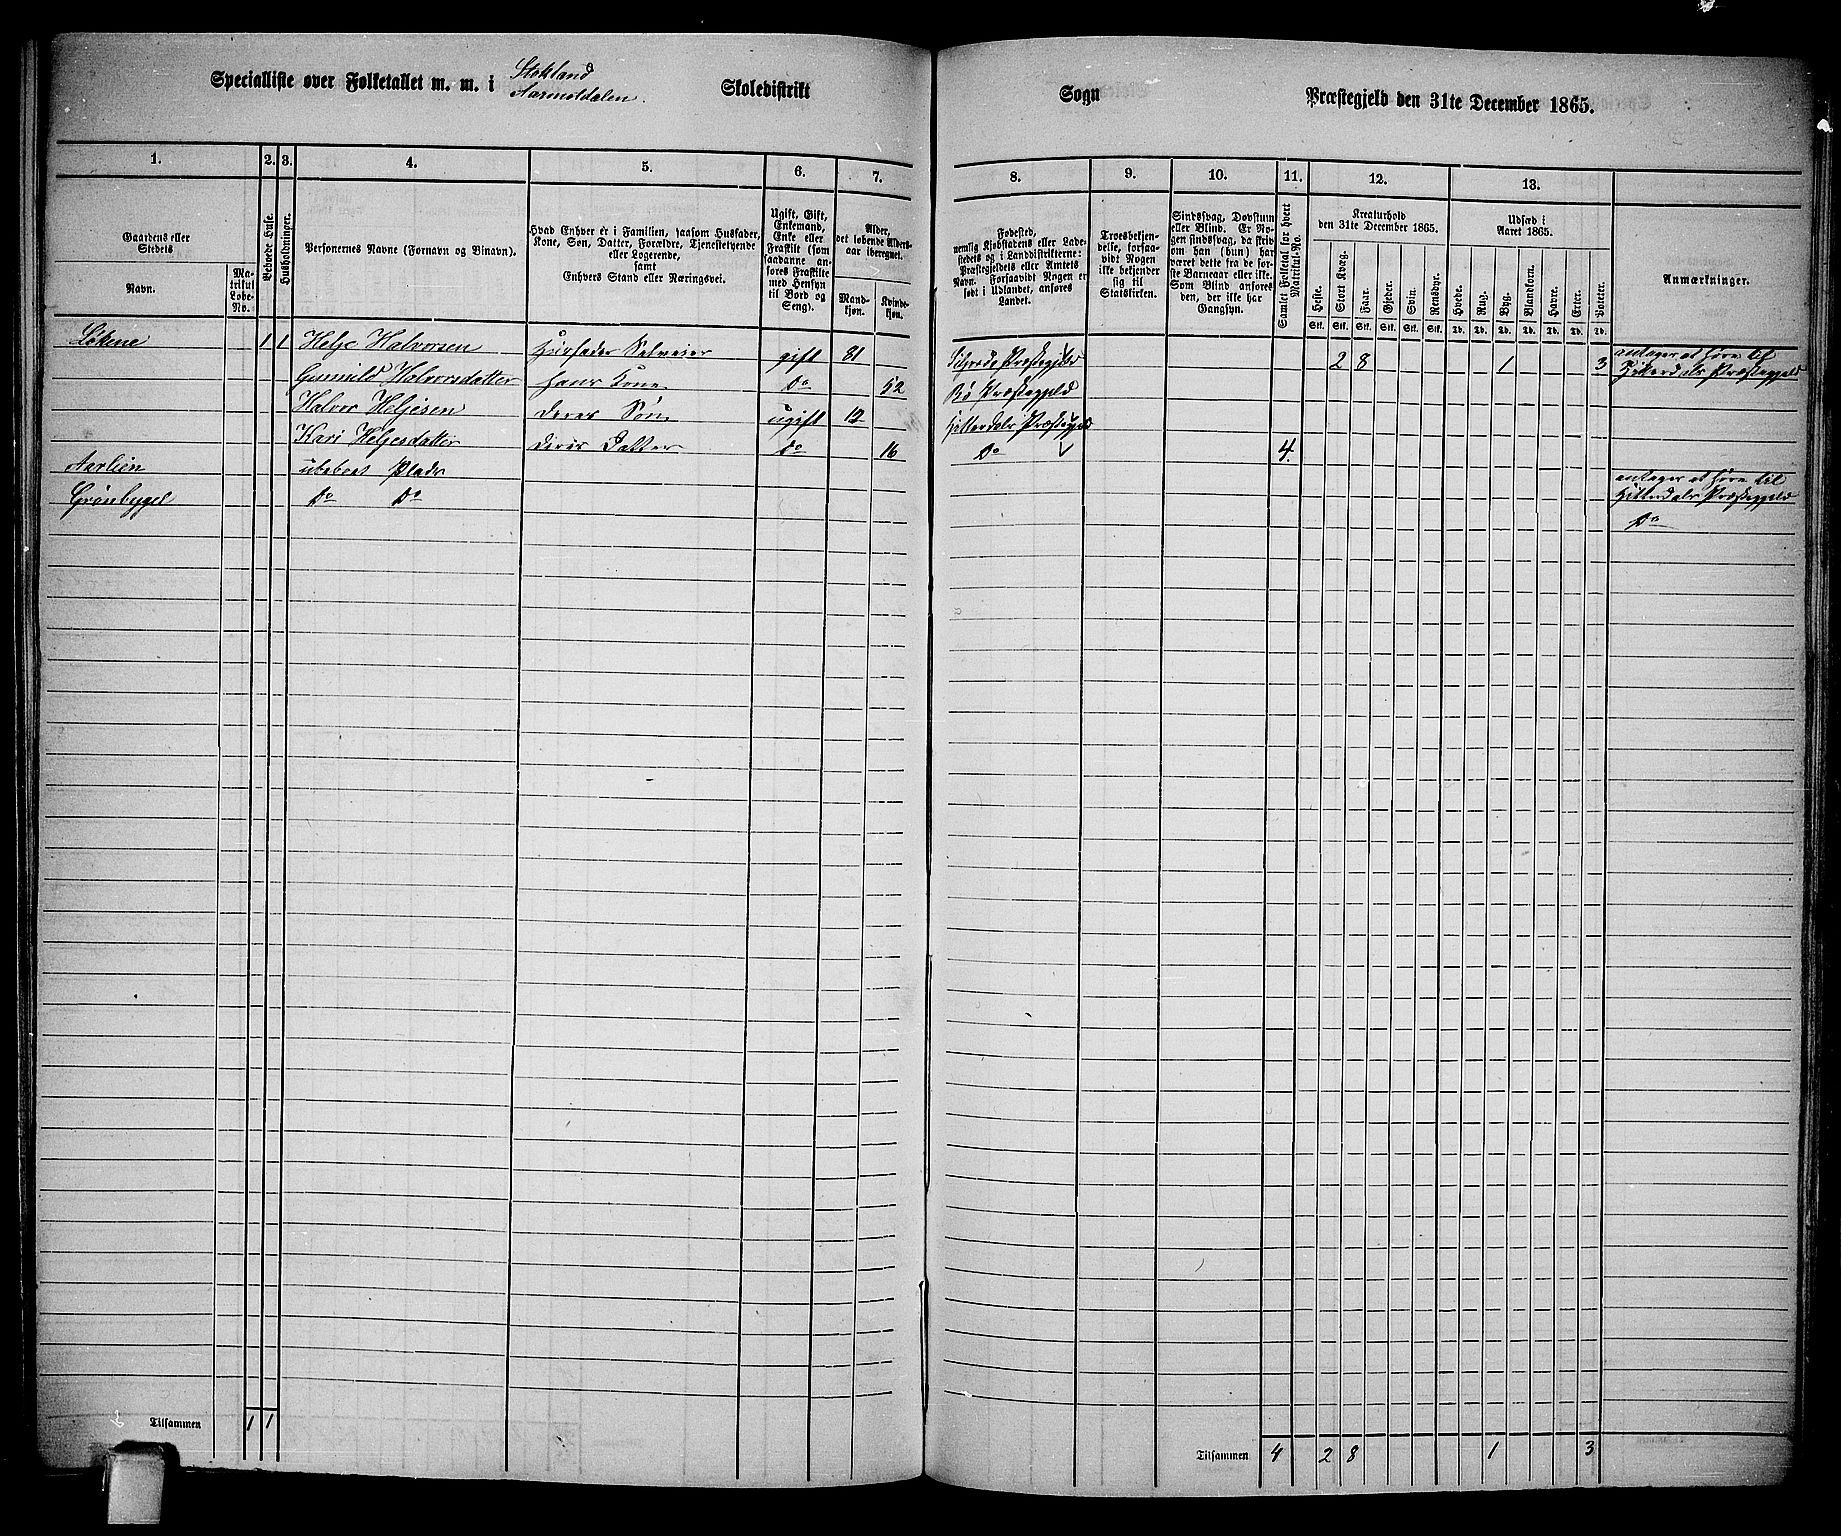 Specialliste over Folketallet m. m. i Stokland Skoledistrikt Sogn Præstegjeld den 31te December 1865.
Aarmotdalen.
1. 2. 3. 4. 5. 6. 7. 8. 9. 10. 11. 12. 13.
Gaardens eller Stedets
Navn.
Matrikul Løbe-No.
Beboede Huse.
Husholdninger.
Personernes Navne (Fornavn og Binavn).
Hvad Enhver er i Familien, saasom Husfader, Kone, Søn, Datter, Forældre, Tjenestetyende eller Logerende, samt Enhvers Stand eller Næringsvei.
Ugift, Gift, Enkemand, Enke eller Fraskilt (som saadanne anføres Fraskilte med Hensyn til Bord og Seng).
Alder, det løbende Alders-aar iberegnet.
Mand-kjøn. Kvinde-kjøn.
Fødested, nemlig Kjøbstadens eller Ladestedets og i Landdistrikterne: Præstegjeldets eller Amtets Navn. Forsaavidt Nogen er født i Udlandet, anføres Landet.
Troesbekjendelse, forsaavidt Nogen ikke bekjender sig til Statskirken.
Sindssvag, Døvstum eller Blind. Er Nogen sindssvag, da skrives om han (hun) har været dette fra de første Barneaar eller ikke. Som Blind anføres den, der ikke har Gangsyn.
Samlet Folketal for hvert Matrikul-No.
Kreaturhold den 31te December 1865.
Heste. Stort Kvæg. Faar. Gjeder. Svin. Rensdyr.
Stk. Stk. Stk. Stk. Stk. Stk.
Udsæd i Aaret 1865.
Hvede. Rug. Byg. Blandkorn. Havre. Erter. Poteter.
Td. Td. Td. Td. Td. Td. Td.
Anmærkninger.
Løkene 1 1 Helje Halvorsen Husfader Selveier gift 81 Præstegjeld 2 8 1 3 antager at høre til Hitterdals Præstegjeld
Gunnild Halvorsdatter hans Kone Do 52 Bø Præstegjeld
Halvor Heljesen deres Søn ugift 12 Hitterdals Præstegjeld
Kari Heljesdatter deres Datter Do 16 Do 4.
Aarlien ubeboet Plads antager at høre til Hitterdals Præstegjeld
Grønbygel Do Do Do
Tilsammen 1 1 Tilsammen 4 2 8 1 3